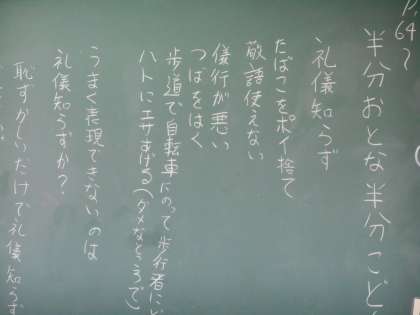 P.64〜
半分おとな半分こども
礼儀知らず
たばこをポイ捨て
敬語使えない
儀行が悪い
つばをはく
歩道で自転車にのって歩行者に
ハトにエサあげる(ダメなところで)
うまく表現できないのは
礼儀知らずか?
恥ずかしいだけで礼儀知らず